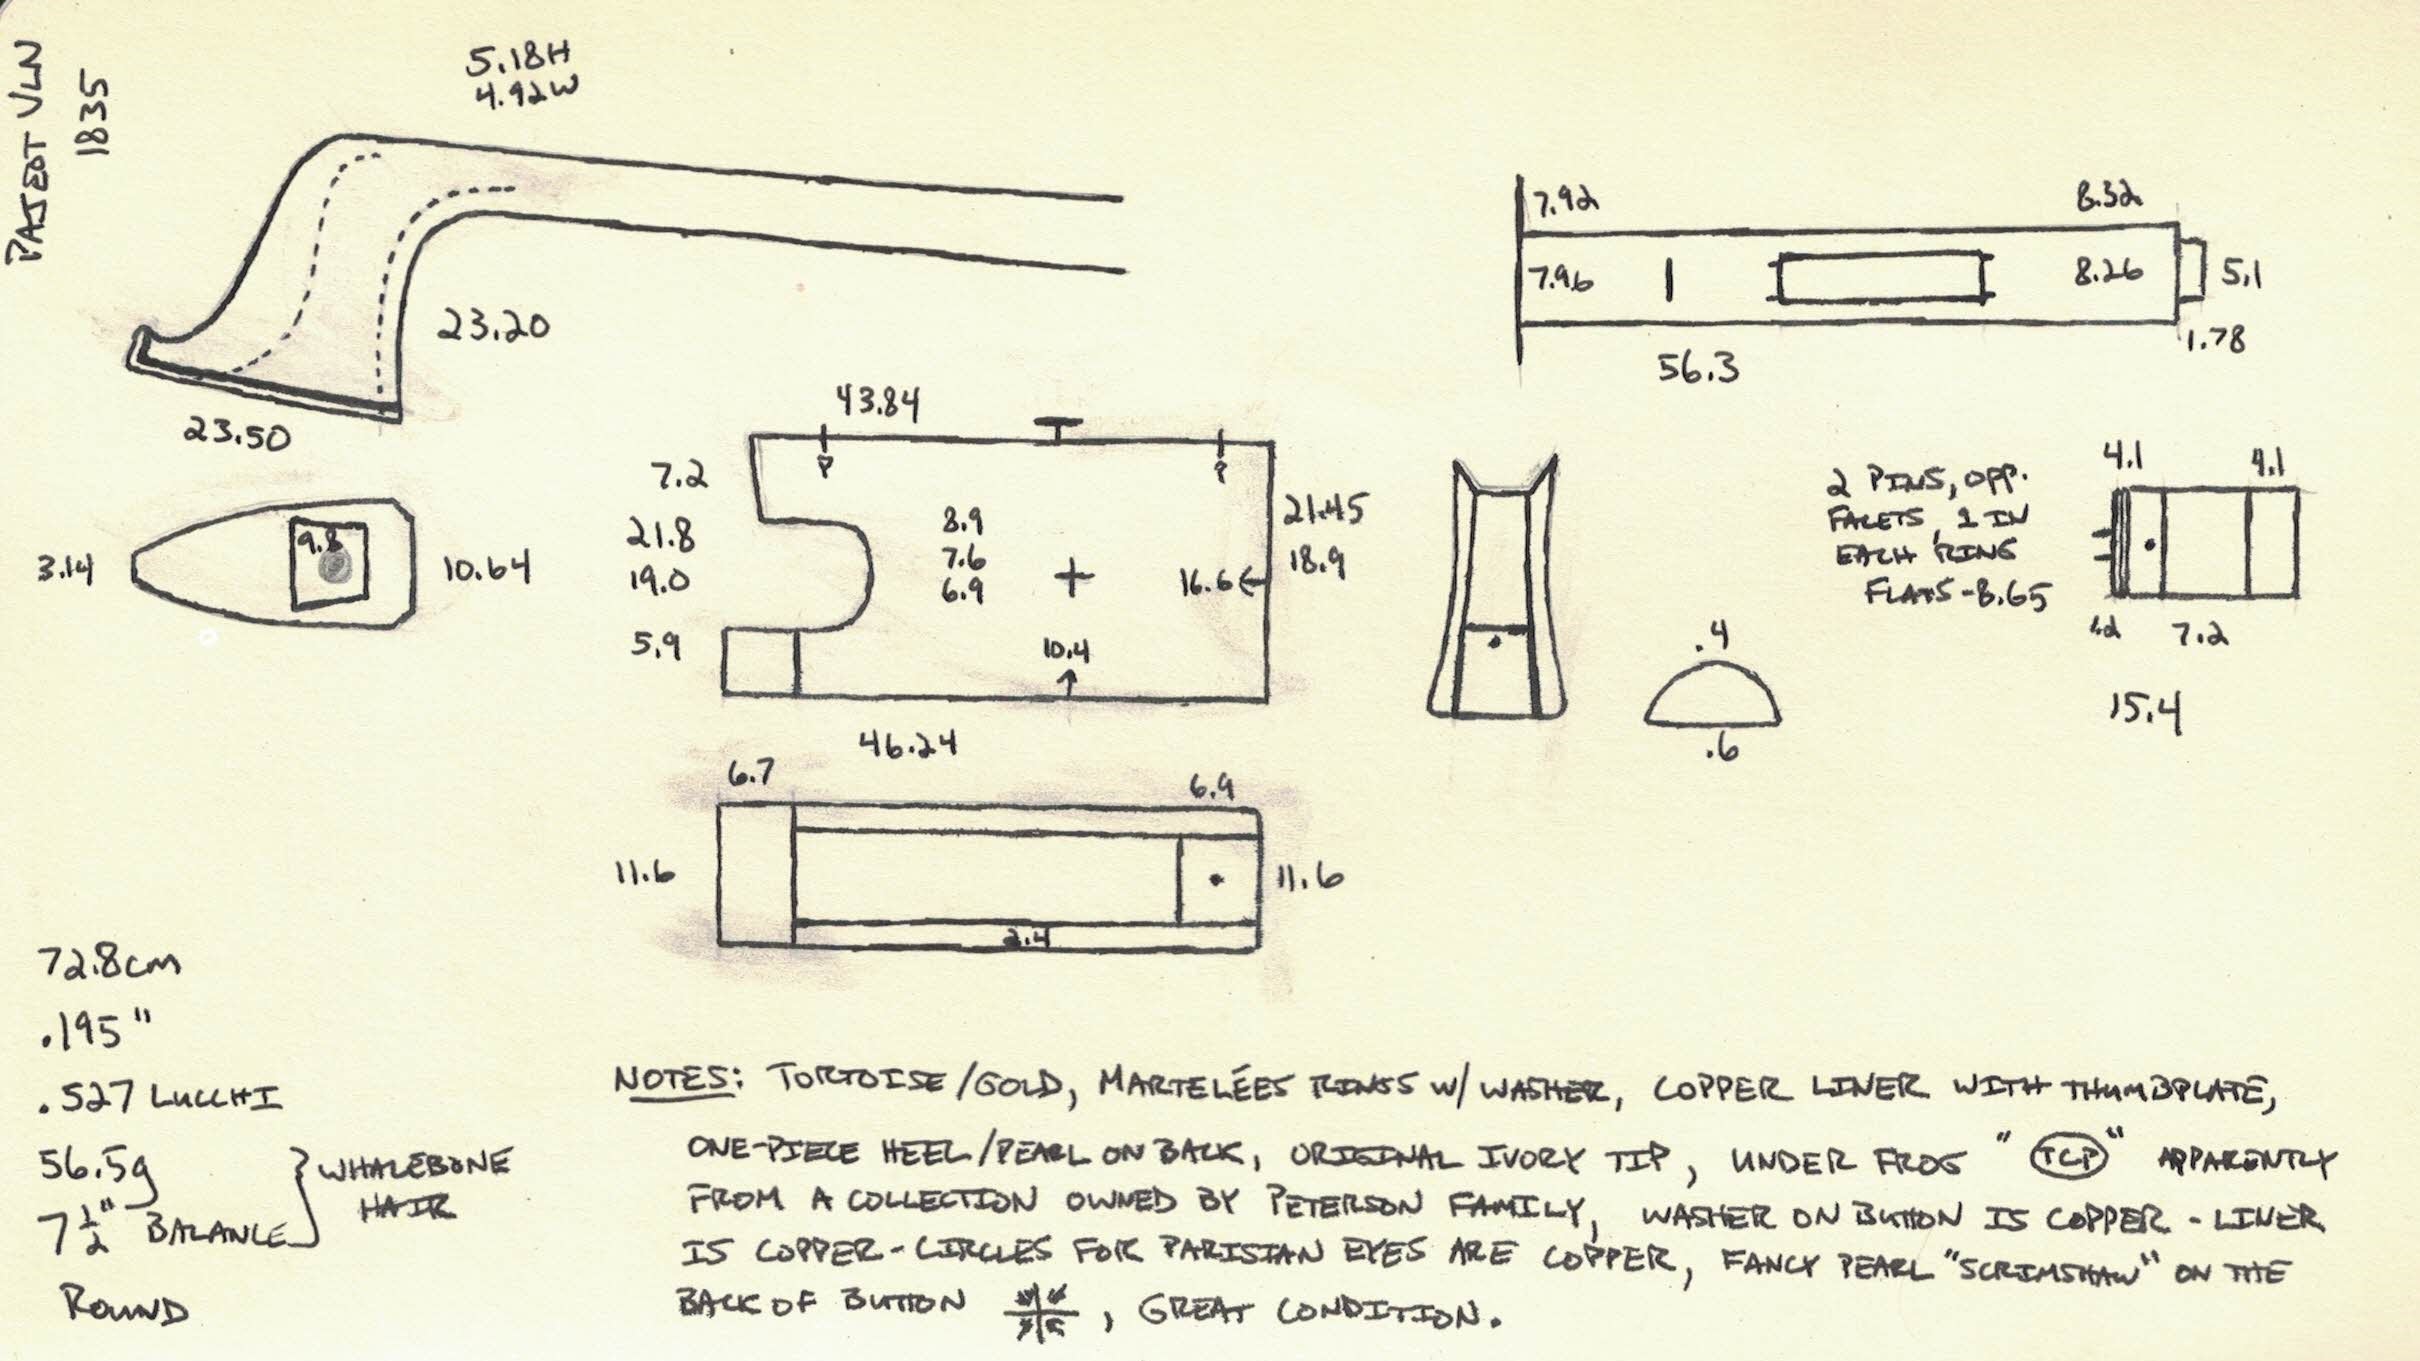 PAJEOT VLN
1835
5.18H
4.92W
23.20
23.50
3.14
9.8
10.64
7.92
8.32
7.96
8.26
5.1
1.78
56.3
43.84
P
P
7.2
21.8
19.0
5.9
8.9
7.6
6.9
16.6
10.4
21.45
18.9
46.24
.4
.6
2 PINS, OPP.
FACETS, 1 IN
EACH RING
FLATS - 8.65
4.1
4.1
7.2
15.4
6.7
6.9
11.6
11.6
2.4
72.8cm
.195"
.527 LUCCHI
56.5g
7 1/2" BALANCE
WHALEBONE
HAIR
ROUND
NOTES: TORTOISE/GOLD, MARTELÉES RINGS W/ WASHER, COPPER LINER WITH THUMBPLATE,
ONE-PIECE HEEL/PEARL ON BACK, ORIGINAL IVORY TIP, UNDER FROG "TCP" APPARENTLY
FROM A COLLECTION OWNED BY PETERSON FAMILY, WASHER ON BUTTON IS COPPER - LINER
IS COPPER - CIRCLES FOR PARISIAN EYES ARE COPPER, FANCY PEARL "SCRIMSHAW" ON THE
BACK OF BUTTON , GREAT CONDITION.